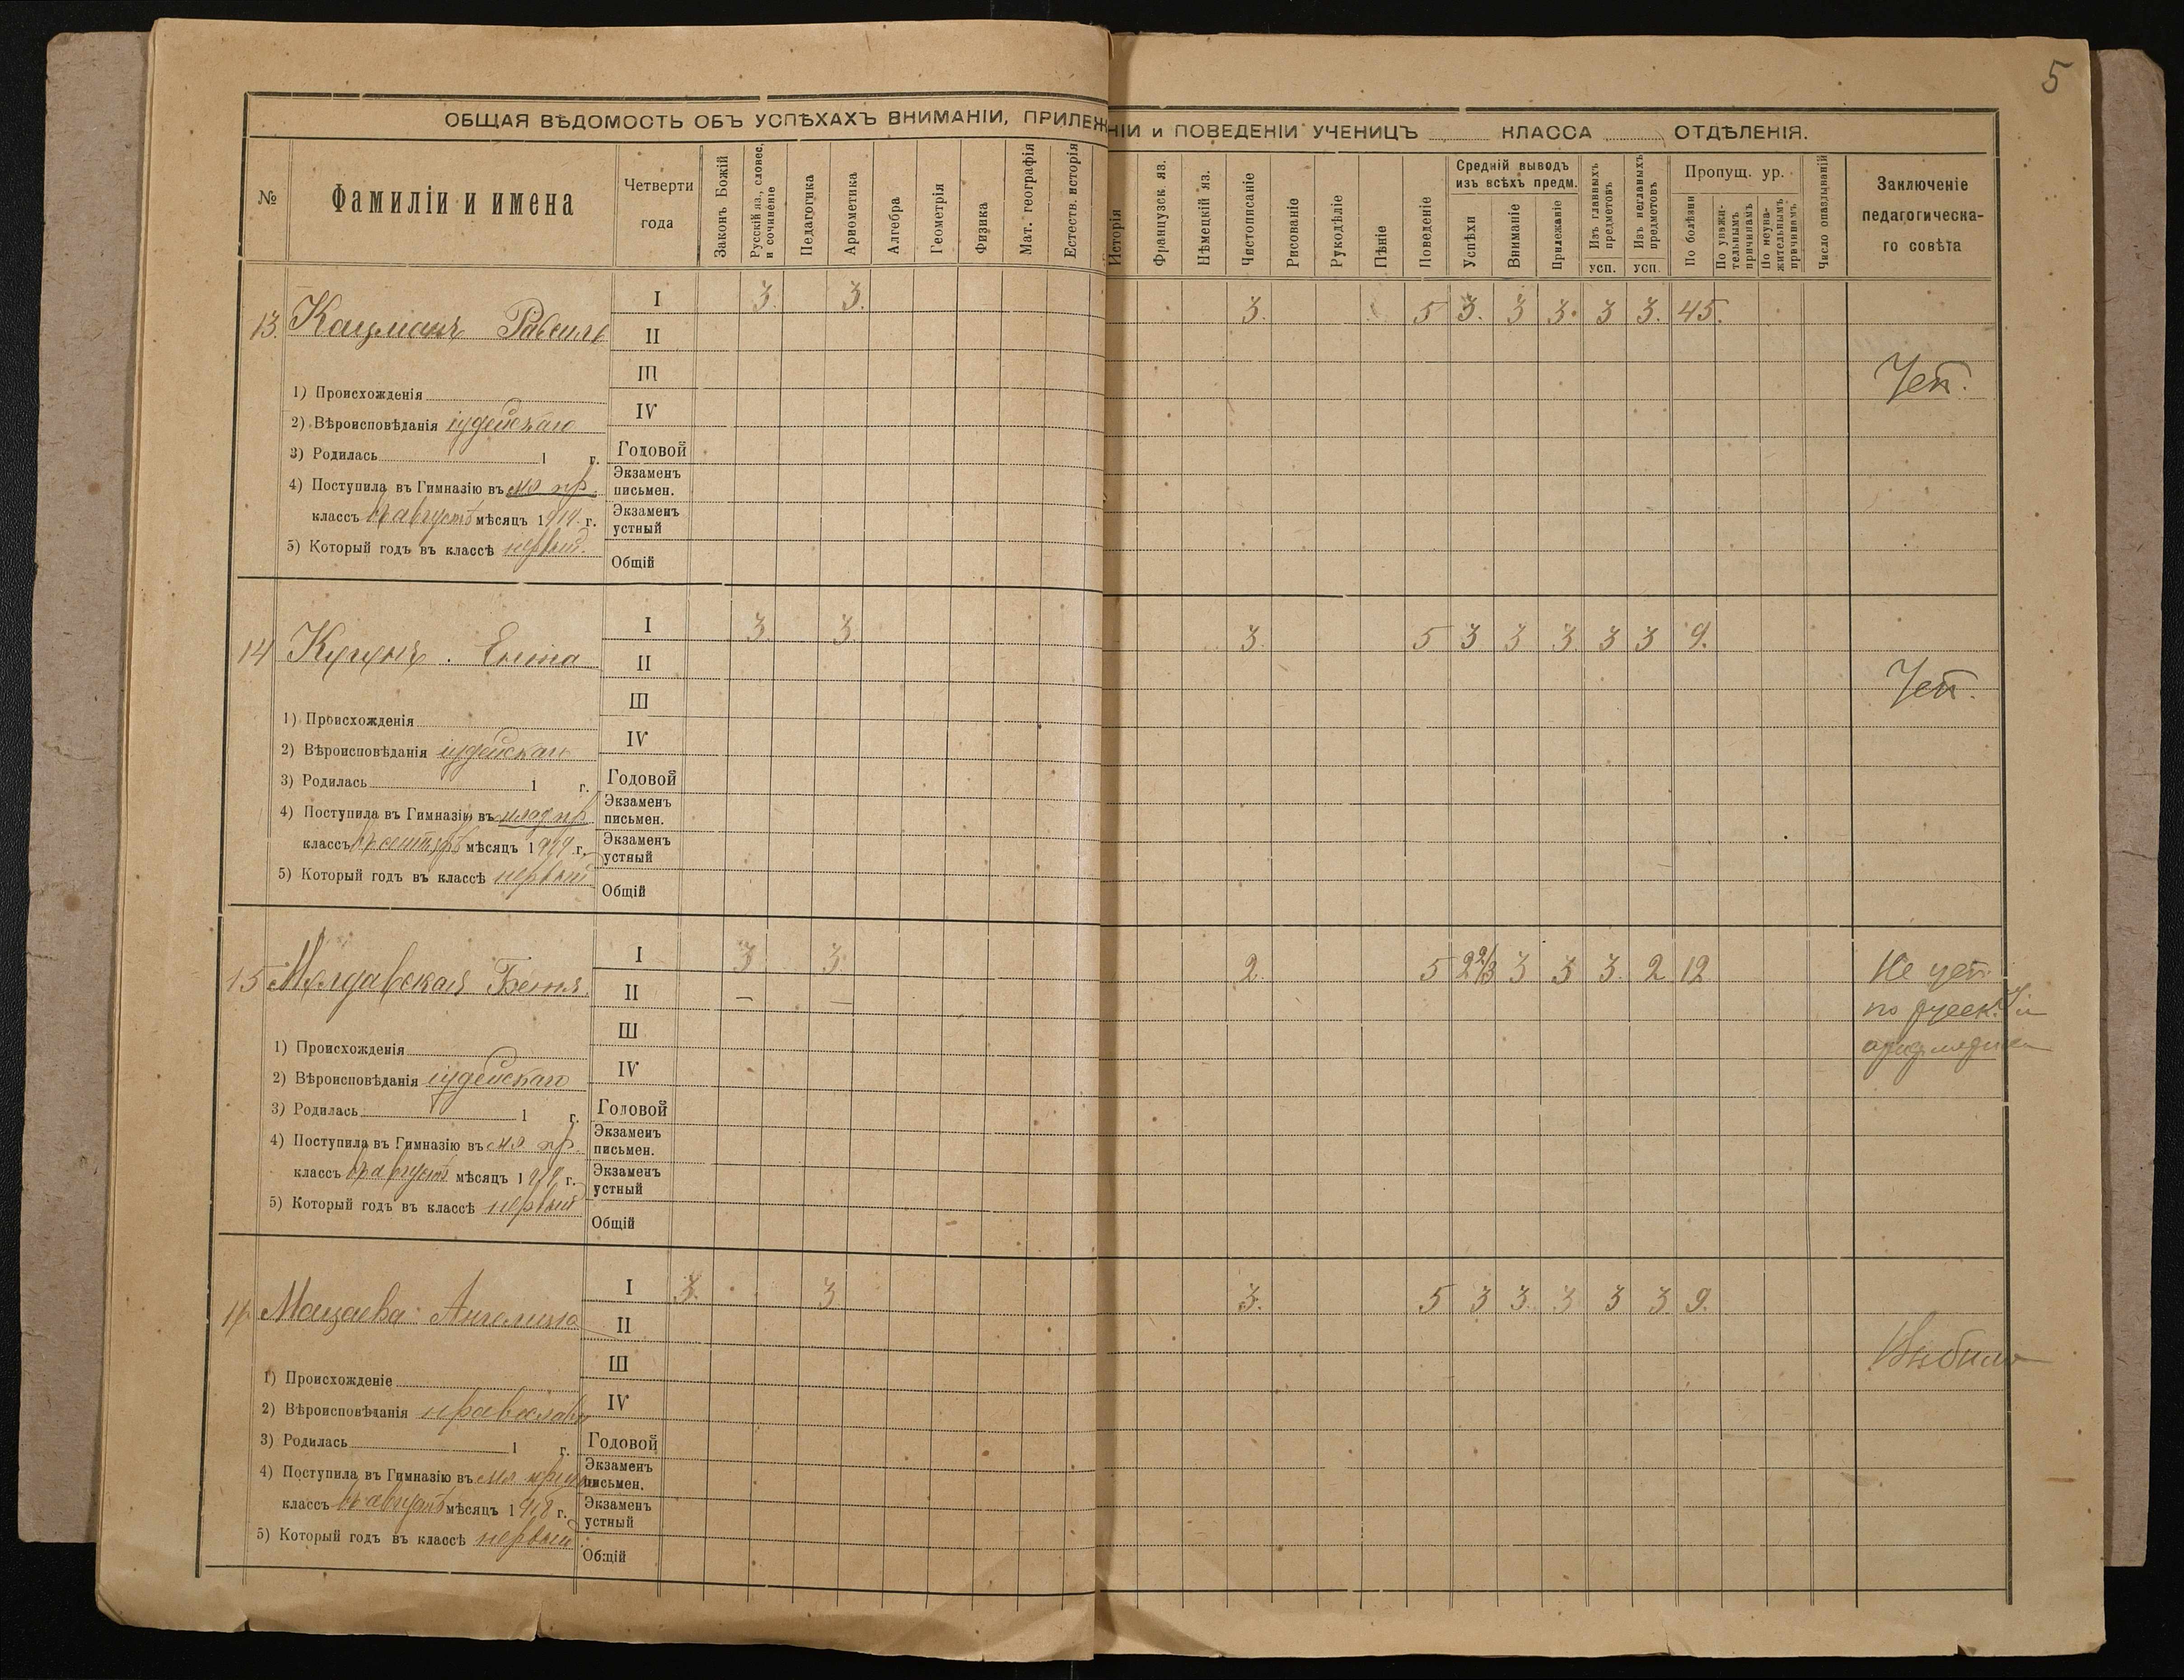 5
ОБЩАЯ ВѢДОМОСТЬ ОБЪ УСПѢХАХЪ ВНИМАНІИ, ПРИЛЕЖНІИ и ПОВЕДЕНІИ УЧЕНИЦЪ КЛАССА ОТДѢЛЕНІЯ.
№
Фамиліи и имена
Четверти
года
Законъ Божій
Русскій яз., словес.
и сочинене
Педагогика
Ариѳметика
Алгебра
Геометрія
Физика
Мат. географія
Естеств. исторія
Исторія
Французск яз.
Нѣмецкій яз.
Чистописаніе
Рисованіе
Рукодѣліе
Пѣніе
Поведеніе
Средній выводъ
изъ всѣхъ предм.
Успѣхи
Вниманіе
Прилежаніе
Изъ главныхъ
предметовъ
усп.
Изъ неглавныхъ
предметовъ
усп.
Пропущ. ур.
По болѣзни
По уважи-
тельнымъ
причинамъ
По неува-
жительнымъ
причинамъ
Число опаздываній
Заключеніе
педагогическа-
го совѣта
13. Кацманъ
I 3. 3. 3. 5 3. 3 3. 3 3. 45.
II
III
IV
Годовой
Экзаменъ
письмен.
Экзаменъ
устный
Общій
1) Происхожденія
2) Вѣроисповѣданія іудейскаго
3) Родилась 1 г.
4) Поступила въ Гимназію въ мл пр.
классъ въ августѣ мѣсяцъ 1919. г.
5) Который годъ въ классѣ первый.
Уст.
14 Кугунъ. Ента
I 3. 3. 3. 5 3 3 3 3 3 9.
II
III
IV
Годовой
Экзаменъ
письмен.
Экзаменъ
устный
Общій
1) Происхожденія
2) Вѣроисповѣданія іудейскаго
3) Родилась 1 г.
4) Поступила въ Гимназію въ млад пр
классъ мѣсяцъ 1919 г.
5) Который годъ въ классѣ первый
Уст.
15 Молдавская Бетя.
I 3 3 2. 5 2 2/3 3 3 3. 2 12
II — —
III
IV
Годовой
Экзаменъ
письмен.
Экзаменъ
устный
Общій
1) Происхожденія
2) Вѣроисповѣданія іудейскаго
3) Родилась 1 г.
4) Поступила въ Гимназію въ мл. пр.
классъ въ августѣ мѣсяцъ 1919 г.
5) Который годъ въ классѣ первый
Не уст.
по русск.
16 Мацаева Ангелина
I 3. 3 3. 5 3 3. 3 3 3. 9.
II
III
IV
Годовой
Экзаменъ
письмен.
Экзаменъ
устный
Общій
1) Происхожденіе
2) Вѣроисповѣданія православн
3) Родилась 1 г.
4) Поступила въ Гимназію въ мл
классъ въ августѣ мѣсяцъ 1918 г.
5) Который годъ въ классѣ первый
Выбыла